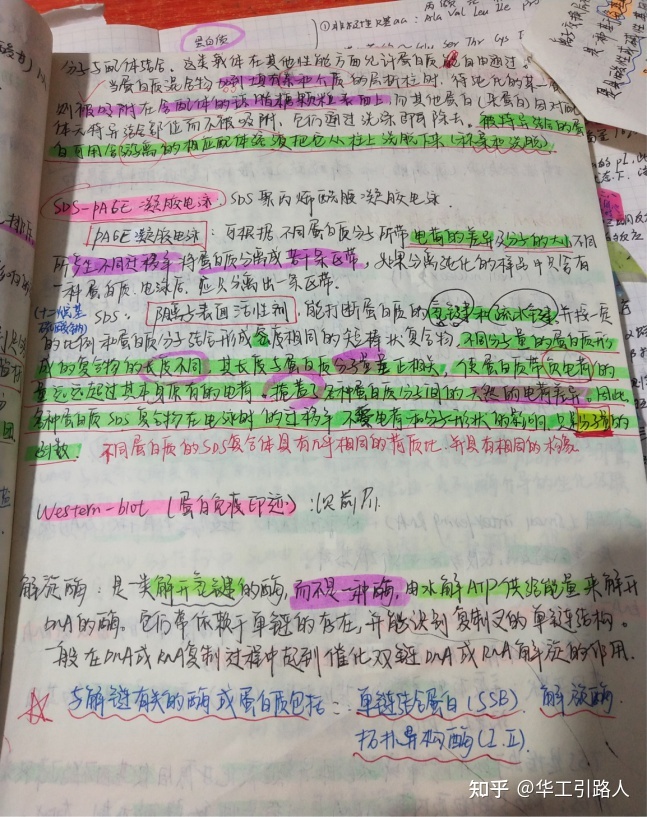 蛋白质
①非极性R基aa: Ala Val Leu Ile Pro
Ser Thr Cys
分子与配体结合。这类载体在其他性能方面允许蛋白质能自由通过。
当蛋白质混合物加到填有亲和介质的层析柱时,待纯化的某一
则被吸附在含配体的琼脂糖颗粒表面上,而其他蛋白(杂蛋白)因对配
体无特异结合部位而不被吸附,它们通过洗涤即可除去。被特异结合的蛋
白可用含游离的相应配体溶液把它从柱上洗脱下来(称亲和洗脱)
SDS-PAGE凝胶电泳:SDS聚丙烯酰胺凝胶电泳.
PAGE凝胶电泳:可根据不同蛋白质分子所带电荷的差异及分子的大小不同
所产生不同迁移率将蛋白质分离成若干条区带,如果分离纯化的样品中只含有
一种蛋白质,电泳后,应只分离出一条区带.
(十二烷基
SDS:阴离子表面活性剂,能打断蛋白质的氢键和疏水键,并按一定
的比例和蛋白质分子结合形成密度相同的短棒状复合物,不同分子量的蛋白质形
成的复合物的长度不同,其长度与蛋白质分子量呈正相关,使蛋白质带负电荷的
量远远超过其本身原有的电荷,掩盖了各种蛋白质分子间的天然的电荷差异,因此,
各种蛋白质SDS复合物在电泳时的迁移率不受电荷和分子形状的影响,只是分子量的
函数. 不同蛋白质的SDS复合体具有几乎相同的荷质比,并具有相同的构象
Western-blot(蛋白免疫印迹):见前
解旋酶:是一类解开氢键的酶,而不是一种酶,由水解ATP供给能量来解开
DNA的酶。它们常依赖于单链的存在,并能识别复制叉的单链结构。
一般在DNA或RNA复制过程中起到催化双链DNA或RNA解旋的作用.
☆ 与解链有关的酶或蛋白质包括:单链结合蛋白(SSB). 解旋酶.
拓扑异构酶(I.II).
知乎 @华工引路人